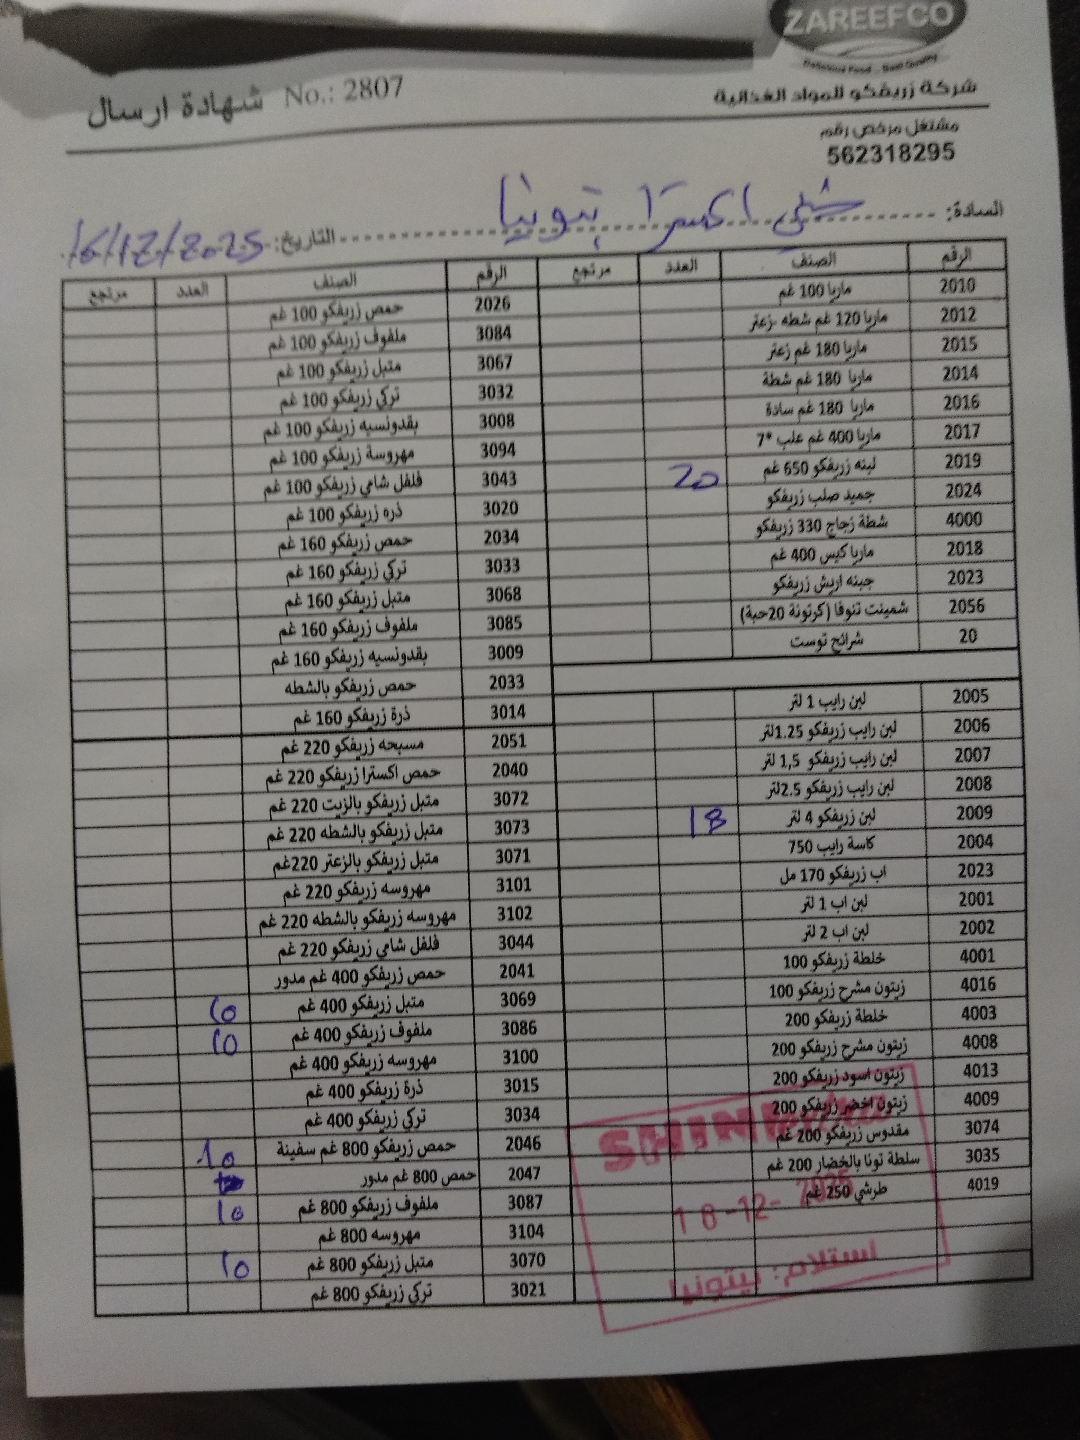 ZAREEFCO
Delicious Food .. Best Quality
شركة زريفكو للمواد الغذائية
شهادة ارسال No.: 2807
مشتغل مرخص رقم
562318295
السادة: شني اكسترا بتونيا
التاريخ: 16/12/2025
الرقم الصنف العدد مرتجع
2010 ماريا 100 غم
2012 ماريا 120 غم شطه -زعتر
2015 ماريا 180 غم زعتر
2014 ماريا 180 غم شطة
2016 ماريا 180 غم سادة
2017 ماريا 400 غم علب *7
2019 لبنه زريفكو 650 غم 20
2024 جميد صلب زريفكو
4000 شطة زجاج 330 زريفكو
2018 ماريا كيس 400 غم
2023 جبنه اريش زريفكو
2056 شمينت تنوفا (كرتونة 20حبة)
20 شرائح توست
2005 لبن رايب 1 لتر
2006 لبن رايب زريفكو 1.25لتر
2007 لبن رايب زريفكو 1,5 لتر
2008 لبن رايب زريفكو 2.5لتر
2009 لبن زريفكو 4 لتر 18
2004 كاسة رايب 750
2023 اب زريفكو 170 مل
2001 لبن اب 1 لتر
2002 لبن اب 2 لتر
4001 خلطة زريفكو 100
4016 زيتون مشرح زريفكو 100
4003 خلطة زريفكو 200
4008 زيتون مشرح زريفكو 200
4013 زيتون اسود زريفكو 200
4009 زيتون اخضر زريفكو 200
3074 مقدوس زريفكو 200 غم
3035 سلطة تونا بالخضار 200 غم
4019 طرشي 250 غم
الرقم الصنف العدد مرتجع
2026 حمص زريفكو 100 غم
3084 ملفوف زريفكو 100 غم
3067 متبل زريفكو 100 غم
3032 تركي زريفكو 100 غم
3008 بقدونسيه زريفكو 100 غم
3094 مهروسة زريفكو 100 غم
3043 فلفل شامي زريفكو 100 غم
3020 ذره زريفكو 100 غم
2034 حمص زريفكو 160 غم
3033 تركي زريفكو 160 غم
3068 متبل زريفكو 160 غم
3085 ملفوف زريفكو 160 غم
3009 بقدونسيه زريفكو 160 غم
2033 حمص زريفكو بالشطه
3014 ذرة زريفكو 160 غم
2051 مسبحه زريفكو 220 غم
2040 حمص اكسترا زريفكو 220 غم
3072 متبل زريفكو بالزيت 220 غم
3073 متبل زريفكو بالشطه 220 غم
3071 متبل زريفكو بالزعتر 220غم
3101 مهروسه زريفكو 220 غم
3102 مهروسه زريفكو بالشطه 220 غم
3044 فلفل شامي زريفكو 220 غم
2041 حمص زريفكو 400 غم مدور
3069 متبل زريفكو 400 غم 10
3086 ملفوف زريفكو 400 غم 10
3100 مهروسه زريفكو 400 غم
3015 ذرة زريفكو 400 غم
3034 تركي زريفكو 400 غم
2046 حمص زريفكو 800 غم سفينة 10
2047 حمص 800 غم مدور
3087 ملفوف زريفكو 800 غم 10
3104 مهروسه 800 غم
3070 متبل زريفكو 800 غم 10
3021 تركي زريفكو 800 غم
16-12-2025
استلام: بيتونيا